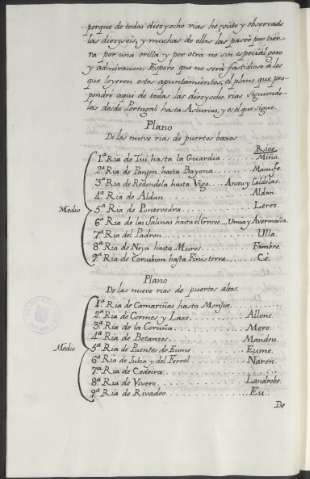 porque de todas diezyocho rias he visto y observado
las diezyseis, y muchas de ellas las pasé por tier-
ra por una orilla y por otra no sin especial gozo
y admiracion. Espero que no será fastidioso a los
que leyeren estos apuntamientos, el plano que pro-
pondré aqui de todas las diezyocho rias siguiendo-
las desde Portugal hasta Asturias, y es el que sigue.
Plano
De las nueve rias de puertos baxos.
Rios
1ª Ria de Tui, hasta la Guardia Miño
2ª Ria de Panjon, hasta Bayona
3ª Ria de Redondela hasta Vigo
4ª Ria de Aldan Aldan.
Medio 5ª Ria de Pontevedra Lerez.
6ª Ria de las Salinas hasta el Grove Umia y
7ª Ria del Padron Ulla.
8ª Ria de Noya hasta Muros Tambre.
9ª Ria de Corcubion hasta Finisterra Cé.
Plano
De las nueve rias de puertos altos.
1ª Ria de Camariñas hasta Monjia
2ª Ria de Cormes y Laxe Allons.
3ª Ria de la Coruña Mero.
4ª Ria de Betanzos Mandeu.
Medio 5ª Ria de Puentes de Eume Eume.
6ª Ria de Jubia y del Ferrol
7ª Ria de Cedeira
8ª Ria de Vivero Landrobe.
9ª Ria de Rivadeo Eu.
De